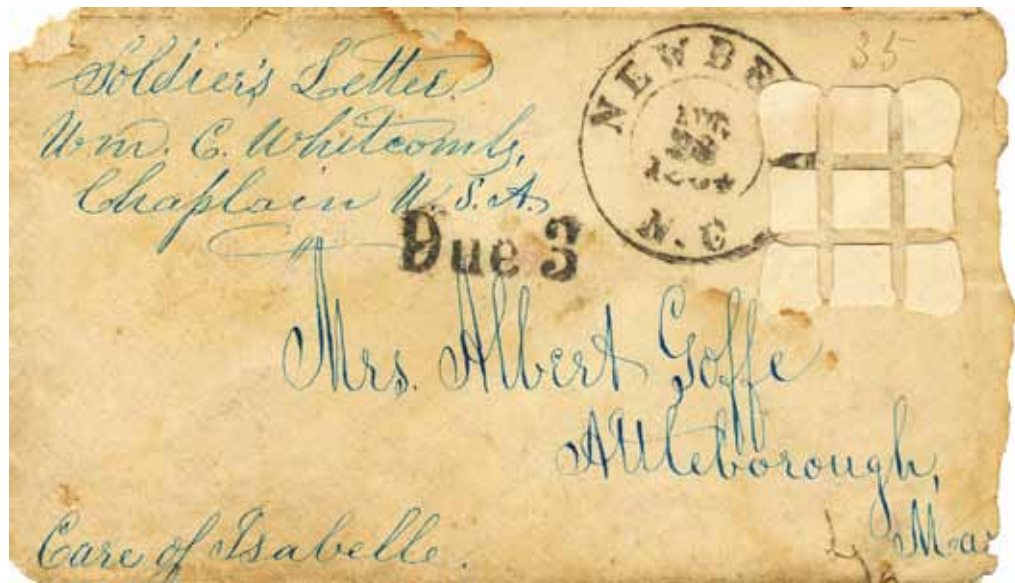 Soldier's Letter.
Wm. C. Whitcomb,
Chaplain U.S.A.
NEWBE
AUG.
N.C
35
Due 3
Mrs. Albert Goffe
Attleborough,
Mas
Care of Isabelle.